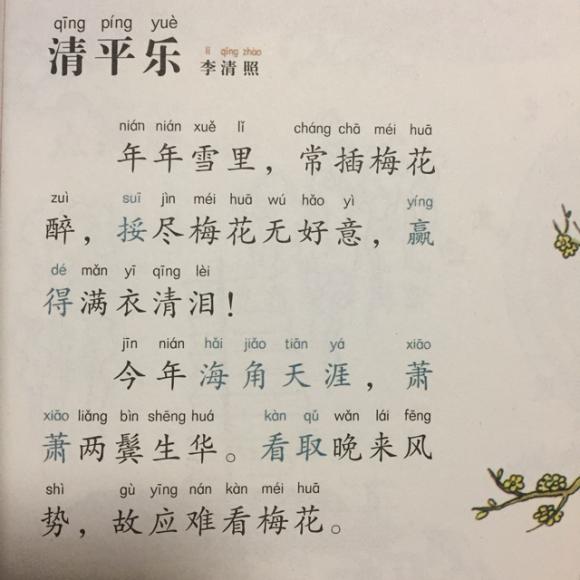 qīng píng yuè
清平乐 lǐ qīng zhào 李清照
nián nián xuě lǐ cháng chā méi huā
年年雪里，常插梅花
zuì suī jìn méi huā wú hǎo yì yíng
醉，挼尽梅花无好意，赢
dé mǎn yī qīng lèi
得满衣清泪！
jīn nián hǎi jiǎo tiān yá xiāo
今年海角天涯，萧
xiāo liǎng bìn shēng huá kàn qǔ wǎn lái fēng
萧两鬓生华。看取晚来风
shì gù yīng nán kàn méi huā
势，故应难看梅花。